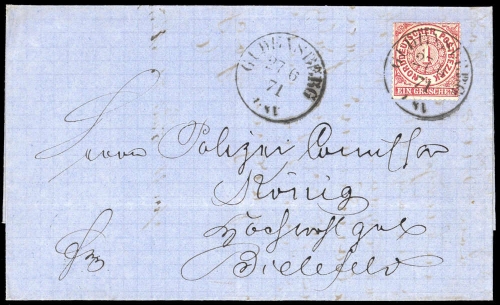 GUDENSBERG
27 6
71
NORDDEUTSCHER POSTBEZIRK
1
EIN GROSCHEN
Herrn Polizei Comissar
König
Hochwohlgeb
Bielefeld